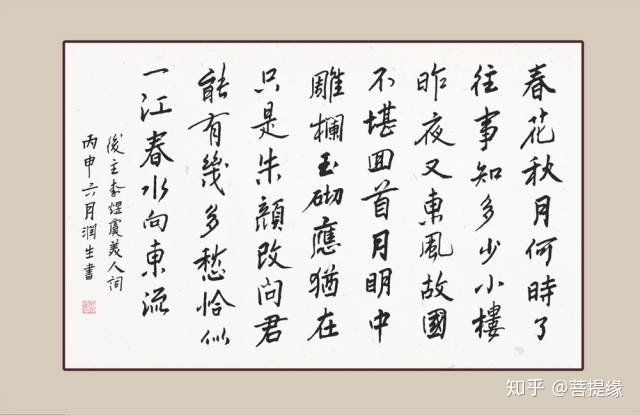 春花秋月何時了
往事知多少小樓
昨夜又東風故國
不堪回首月明中
雕欄玉砌應猶在
只是朱顏改問君
能有幾多愁恰似
一江春水向東流
後主李煜虞美人詞
丙申六月潤生書
知乎 @菩提缘